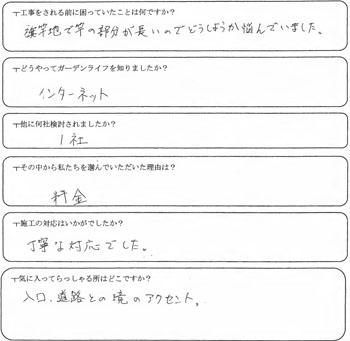 ┬工事をされる前に困っていたことは何ですか?
旗竿地で竿の部分が長いのでどうしようか悩んでいました。
┬どうやってガーデンライフを知りましたか?
インターネット
┬他に何社検討されましたか?
1社
┬その中から私たちを選んでいただいた理由は?
料金
┬施工の対応はいかがでしたか?
丁寧な対応でした。
┬気に入ってらっしゃる所はどこですか?
入口、道路との境のアクセント。